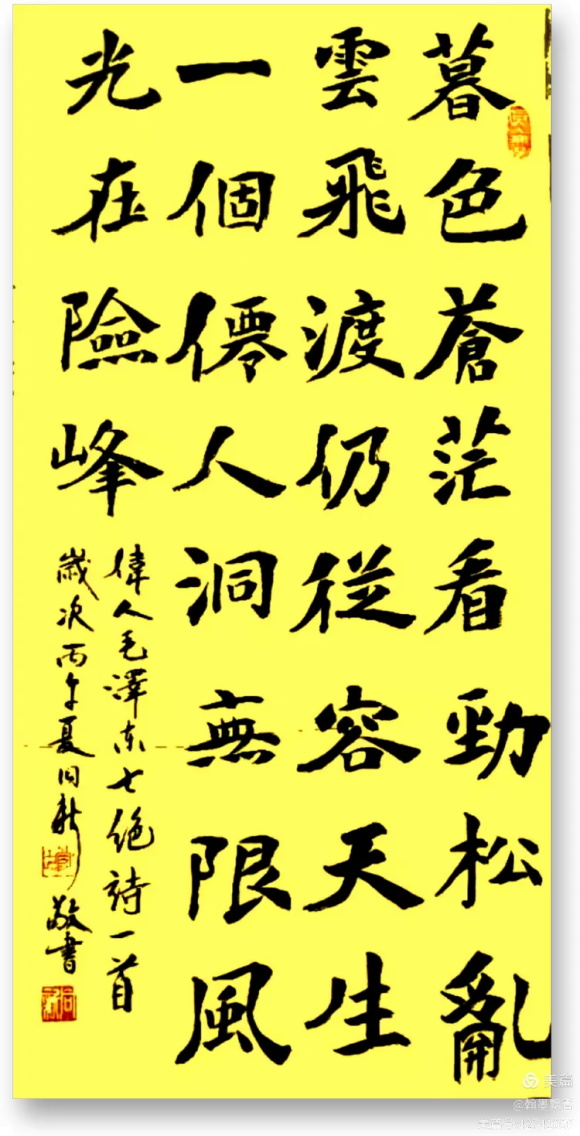 暮色蒼茫看勁松亂
雲飛渡仍從容天生
一個僊人洞無限風
光在險峰
偉人毛澤东七絶詩一首
歲次丙午夏同新敬書
美篇